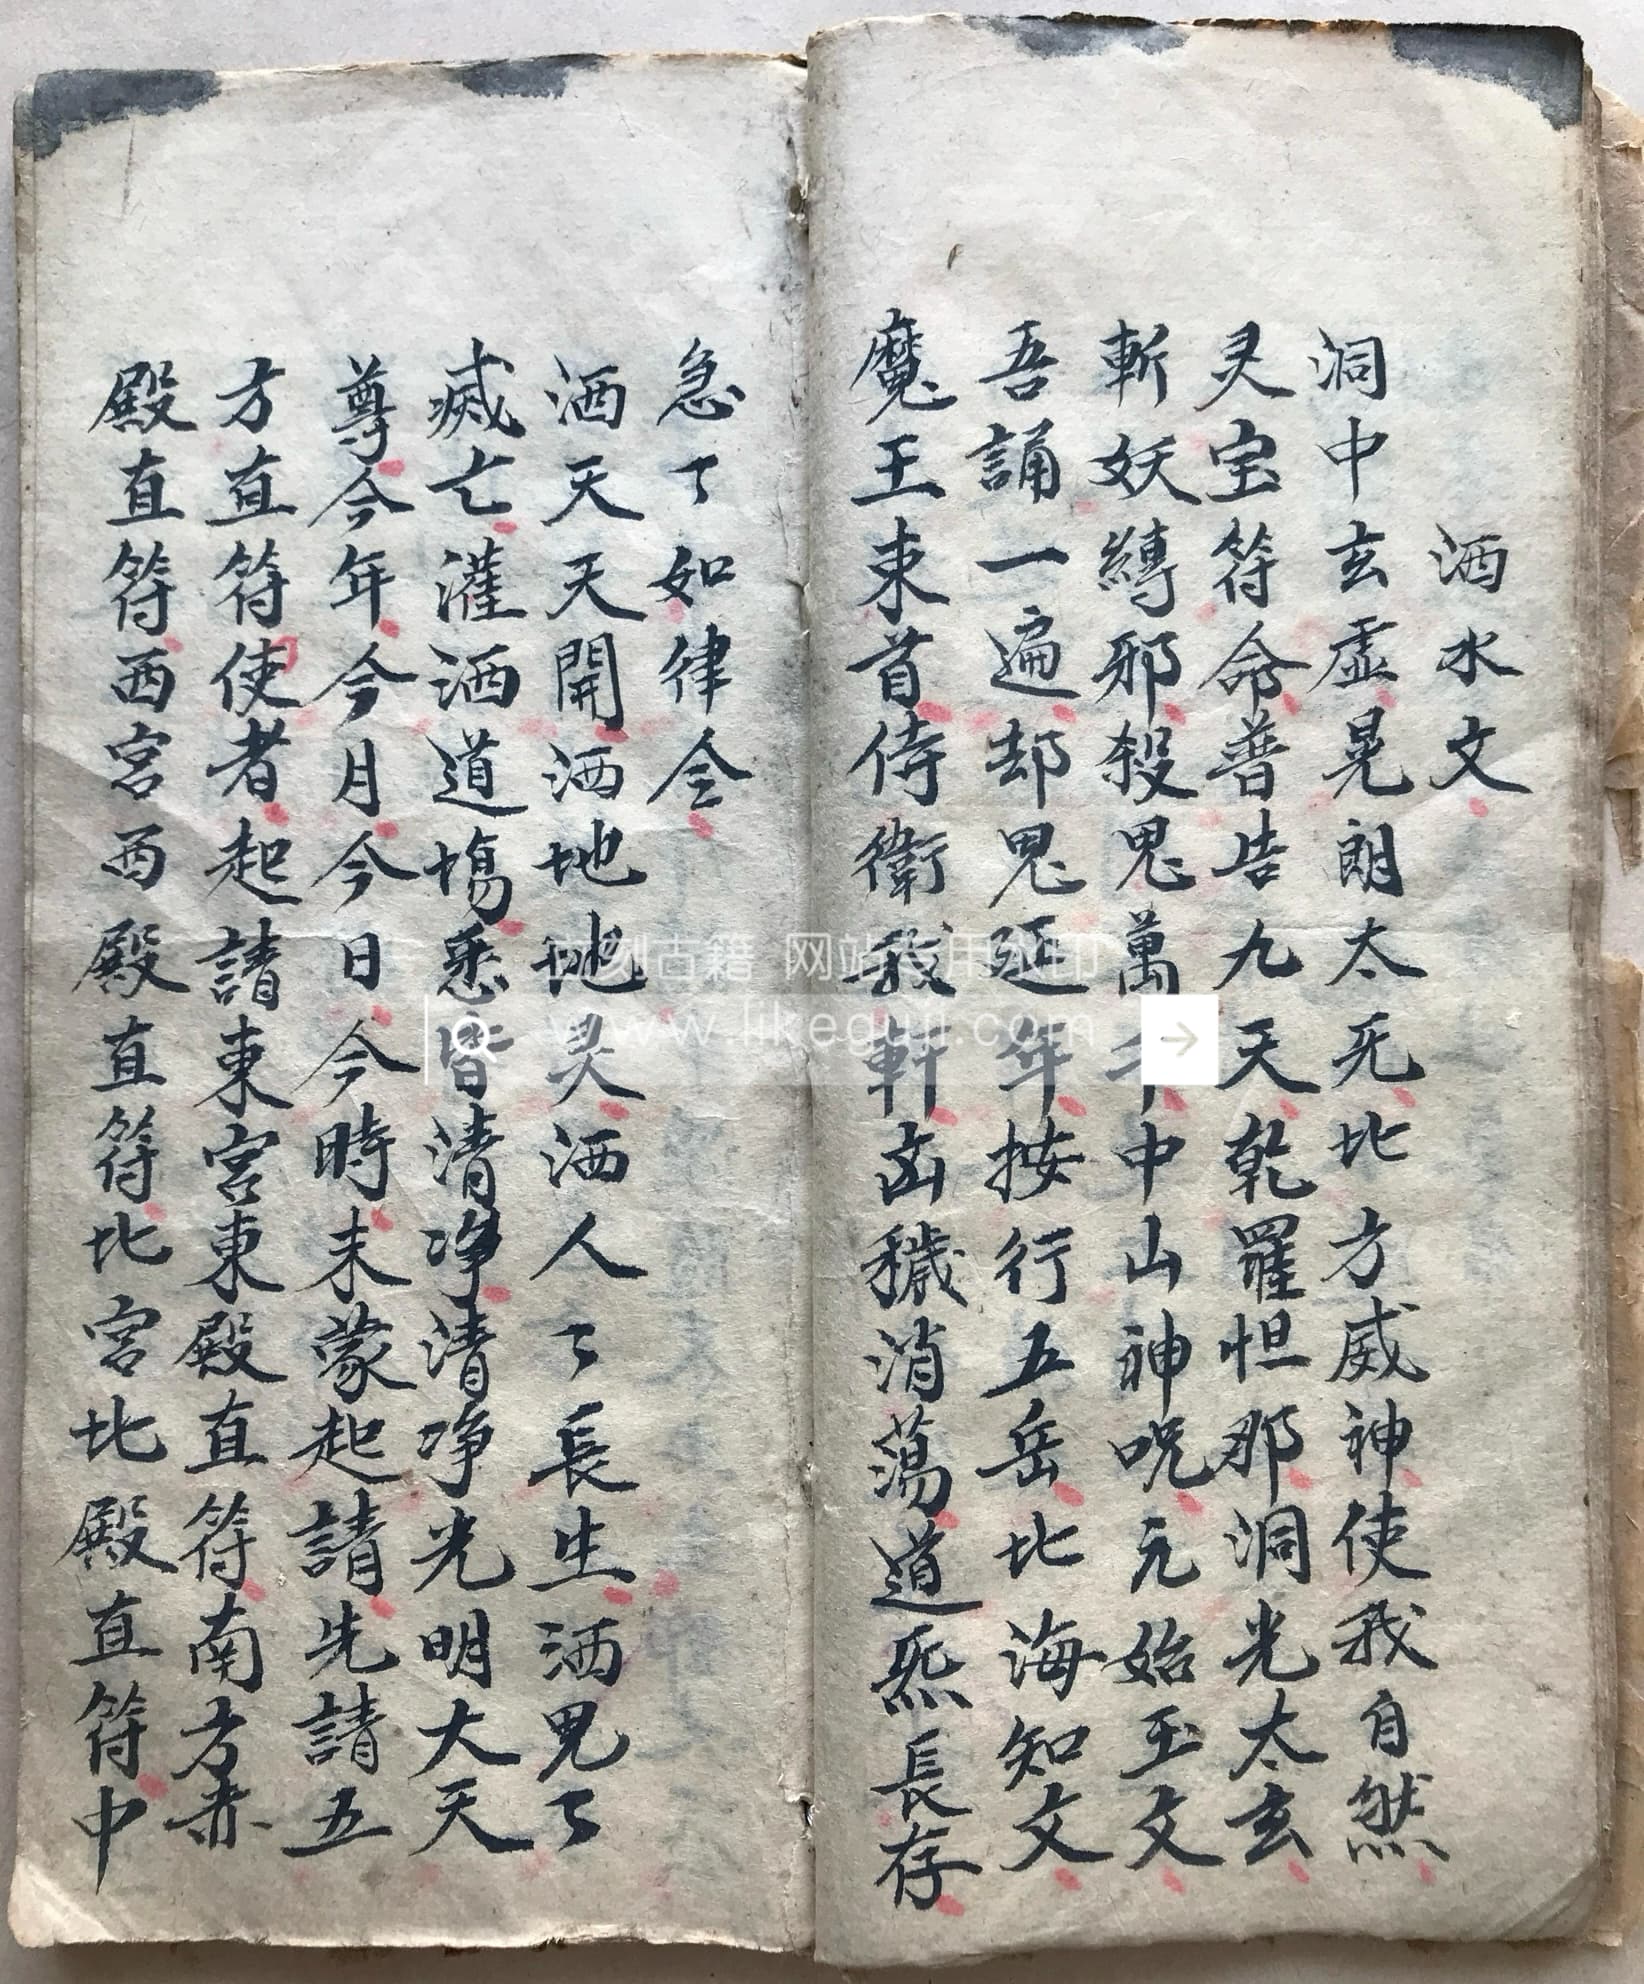 洒水文
洞中玄虛晃朗太旡比方威神使我自然
灵宝符命普告九天乾羅怛那洞光太玄
斬妖縛邪殺鬼萬千中山神神呪元始玉文
吾誦一遍却鬼延年按行五岳比海知文
魔王束首侍衛我軒凶穢消蕩道炁長存
急了如律令
洒天天開洒地地灵洒人了長生洒鬼了
滅亡灌洒道塲悉皆清净清净光明大天
尊今年今月今日今時未蒙起請先請五
方直符使者起請東宮東殿直符南方赤
殿直符西宮西殿直符比宮比殿直符中
古籍 网站专用水印
www.likeguji.com